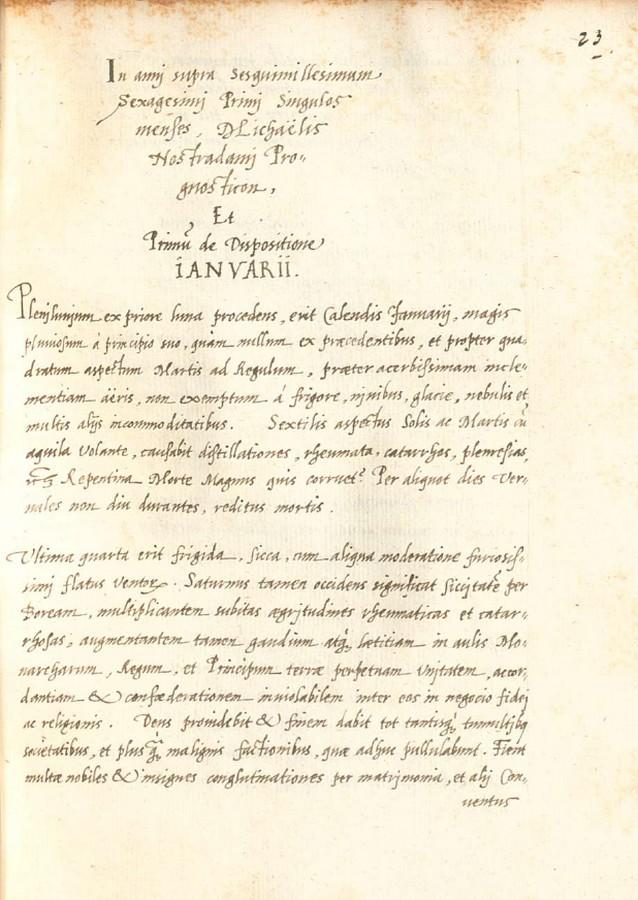 23
In anni supra sesquimillesimum
Sexagesimi Primi Singulos
menses, Michaëlis
Nostradami Pro-
gnosticon,
Et
Primũ de Dispositione
IANVARII.
Plenilunium ex priore luna procedens, erit Calendis Januarij, magis
pluuiosum á principio suo, quam nullum ex præcedentibus, et propter qua-
dratum aspectum Martis ad Regulum, præter acerbissimam incle-
mentiam aëris, non exemptum á frigore, niuibus, glacie, nebulis et
multis alijs incommoditatibus. Sextilis aspectus Solis ac Martis cũ
aquila Volante, causabit distillationes, rheumata, catarrhos, pleuresias,
Repentina Morte Magnus quis corruet? Per aliquot dies Ver-
nales non diu durantes, reditus mortis.
Vltima quarta erit frigida, sicca, cum aliqua moderatione furiosis-
simi flatus ventor. Saturnus tamen occidens significat siccitatẽ per
Boream, multiplicantem subitas ægritudines rheumaticas et catar-
rhosas, augmentantem tamen gaudium atq, lætitiam in aulis Mo-
narcharum, Regum, et Principum terræ perpetuam Vnitatem, accor-
dantiam & confæderationem inuiolabilem inter eos in negocio fidei
ac religionis. Deus prouidebit & finem dabit tot tantisq, tumultibq
societatibus, et plusq̃ malignis factionibus, quæ adhuc pullulabunt. Fient
multæ nobiles & insignes conglutinationes per matrimonia, et alij Con-
uentus